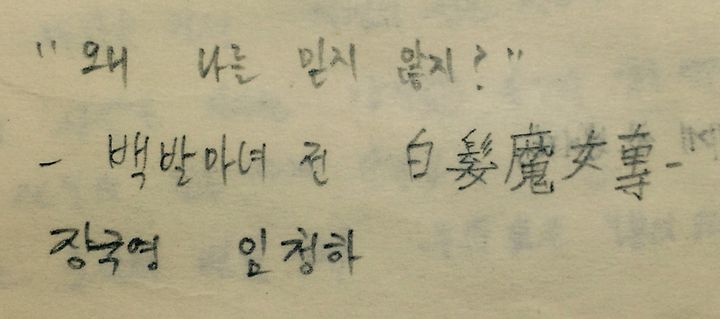 "왜 나를 믿지 않지?"
- 백발마녀 전 白髮魔女專-
장국영 임청하